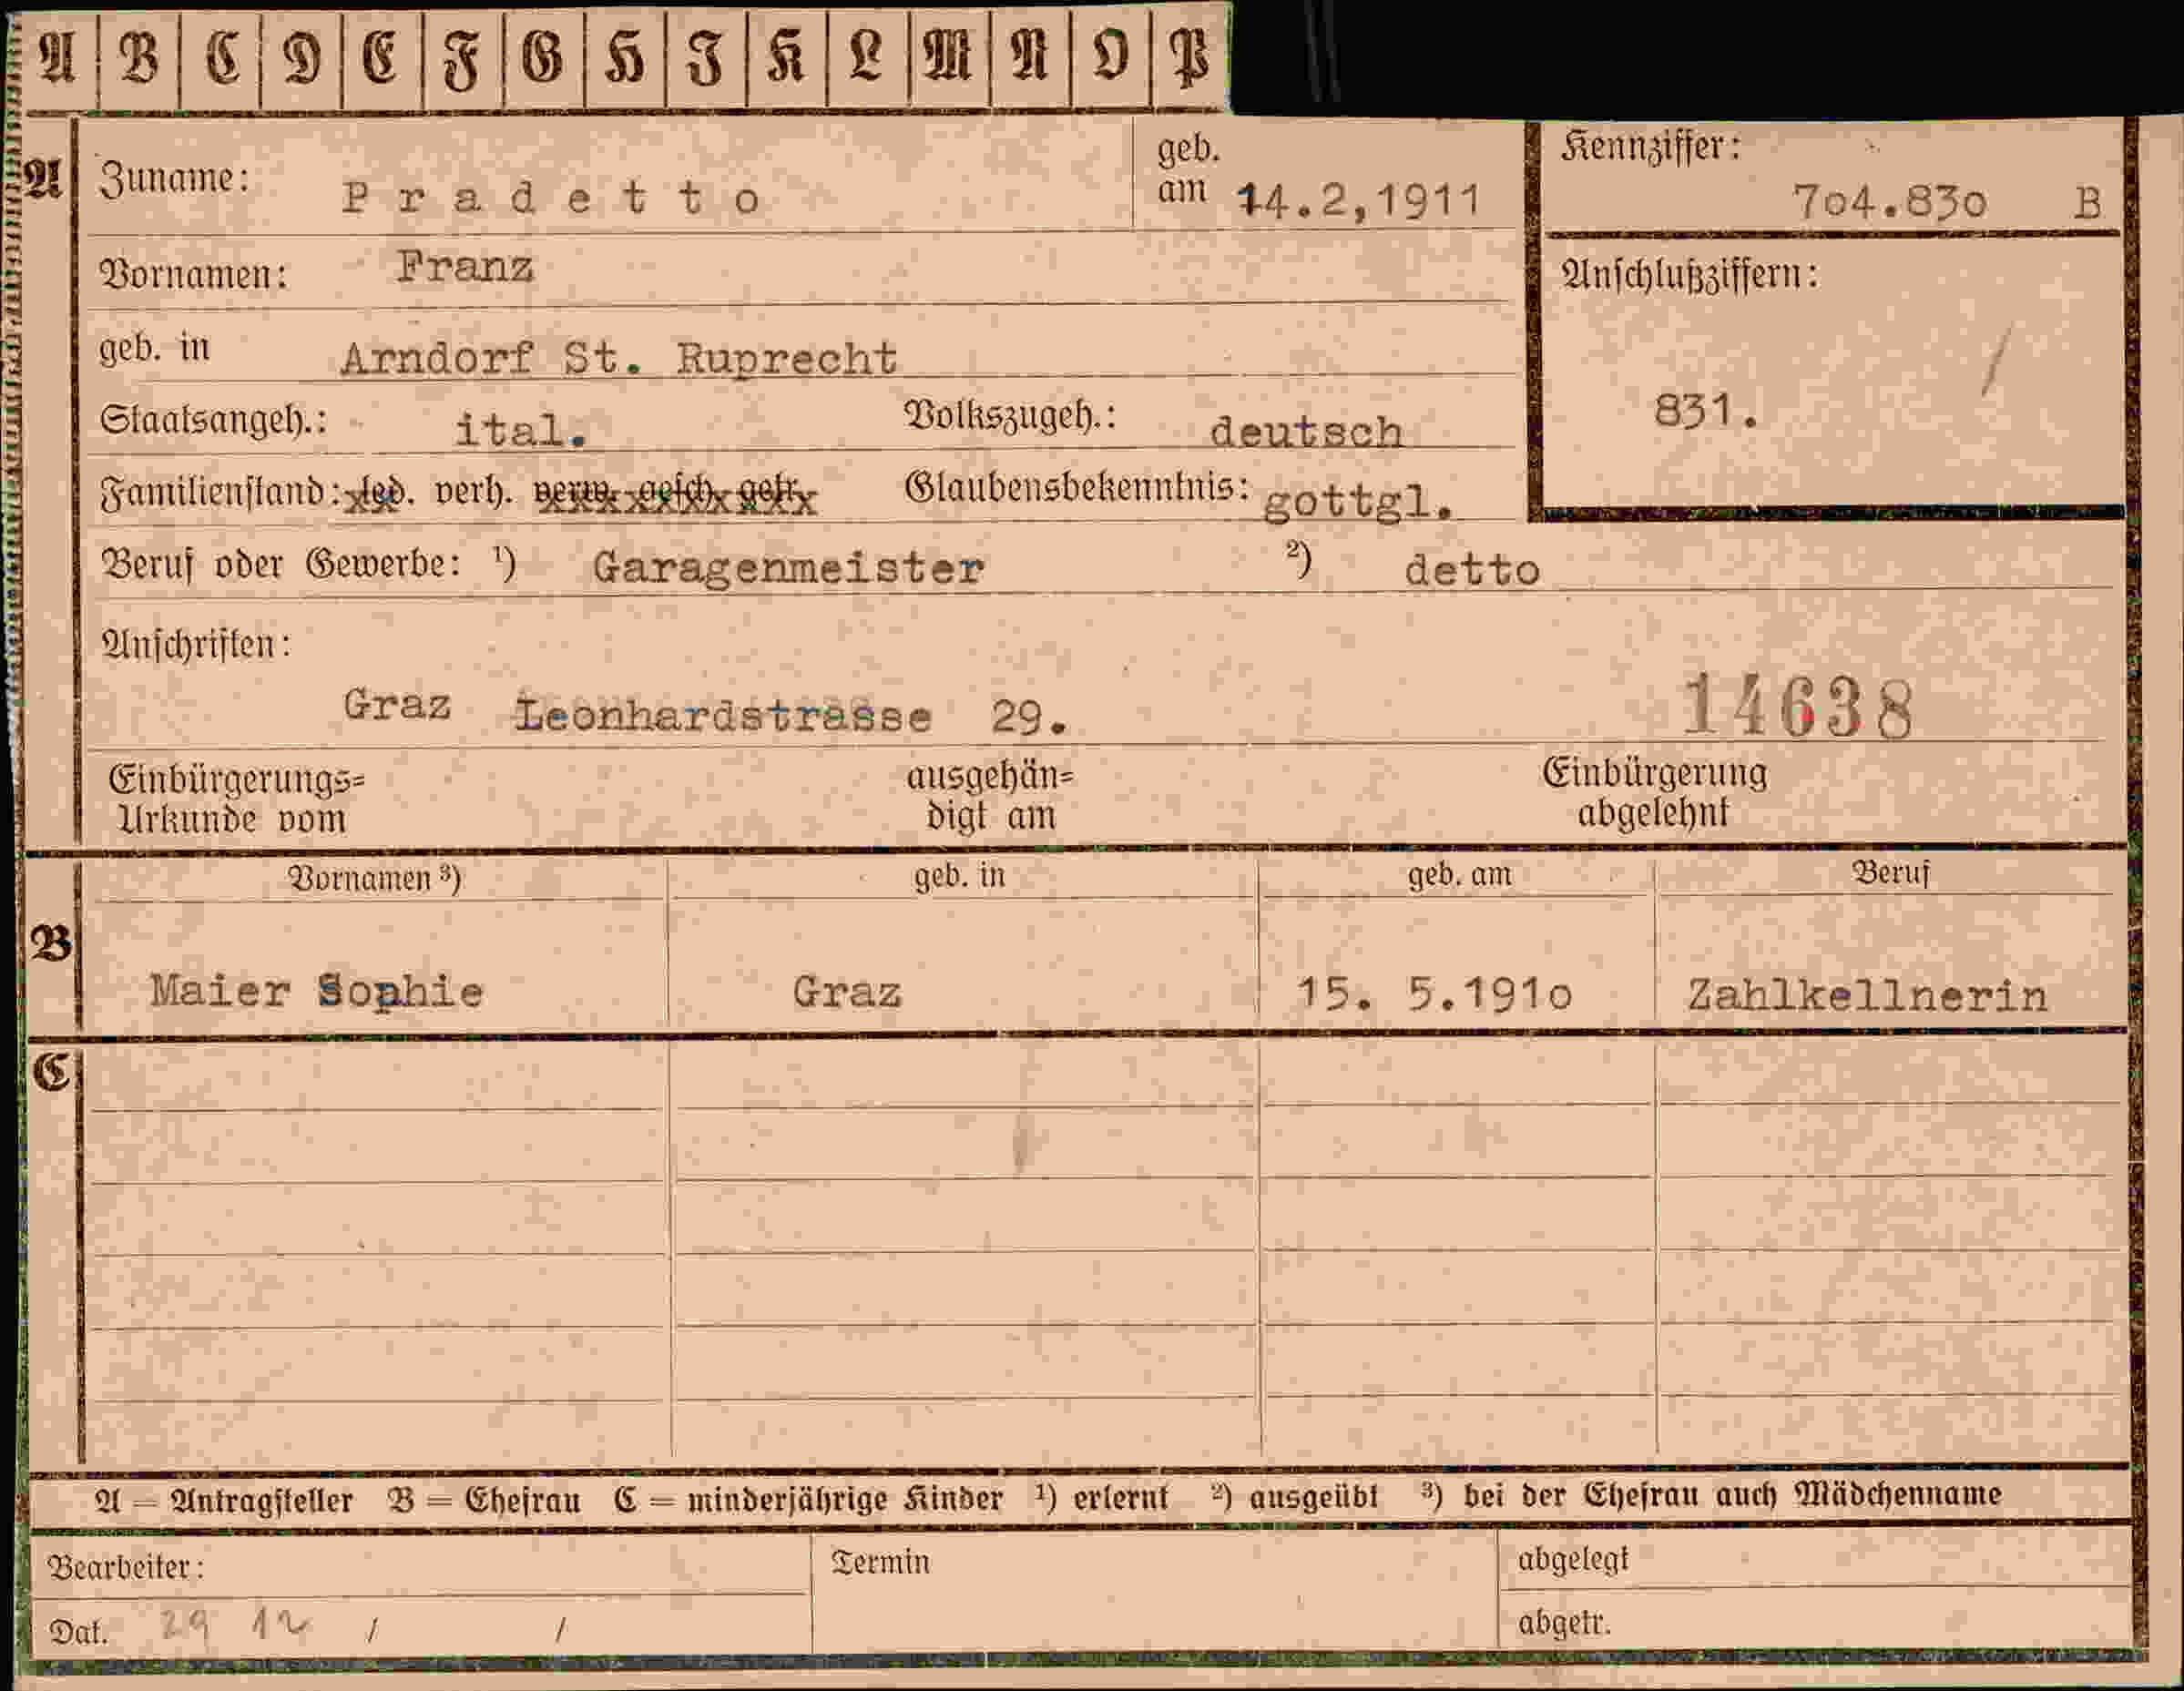 A B C D E F G H I K L M N O P
A Zuname: Pradetto geb. am 14.2,1911 Kennziffer: 704.830 B
Vornamen: Franz Anschlußziffern:
geb. in Arndorf St. Ruprecht
831.
Staatsangeh.: ital. Volkszugeh.: deutsch
Familienstand: led. verh. verw. gesch. getr. Glaubensbekenntnis: gottgl.
Beruf oder Gewerbe: ¹) Garagenmeister ²) detto
Anschriften:
Graz Leonhardstrasse 29. 14638
Einbürgerungs= ausgehän= Einbürgerung
Urkunde vom digt am abgelehnt
Vornamen ³) geb. in geb. am Beruf
B
Maier Sophie Graz 15. 5.1910 Zahlkellnerin
C
A = Antragsteller B = Ehefrau C = minderjährige Kinder ¹) erlernt ²) ausgeübt ³) bei der Ehefrau auch Mädchenname
Bearbeiter: Termin abgelegt
Dat. 29 12 / / abgetr.